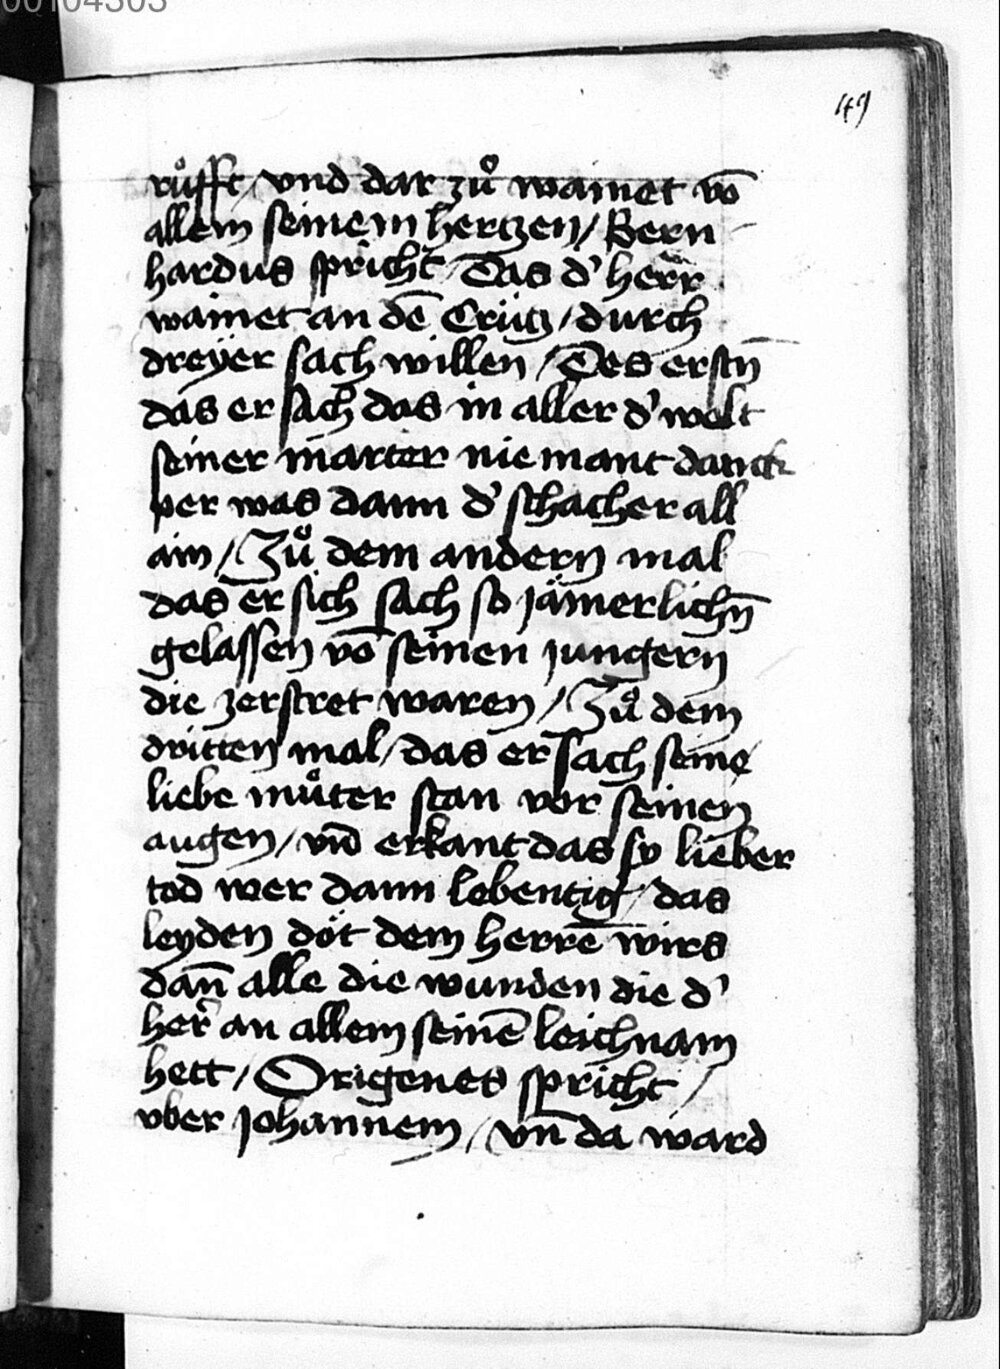 00104303
49
růfft / vnd dar zů wainet vō
allem seinem hertzen / Bern
hardus spricht / Das d' herr
wainet an dē Crütz / durch
dreÿer sach willen / Des erstn̄
das er sach das in aller d' welt
seiner marter niemant danck
per was dann d' schacher all
ain / Zů dem andern mal
das er sich sach so jämerlichn̄
gelassen vō seinen jungern
die zerstret waren / Zů dem
dritten mal / das er sach seine
liebe můter stan vor seinen
augen / vn̄ erkant das sy lieber
tod wer dann lebentig / das
leyden döt dem herrē wirs
dan̄ alle die wunden die d'
her̄ an allem seinē leichnam
hett / Origenes spricht /
vber johannem / vn̄ da ward